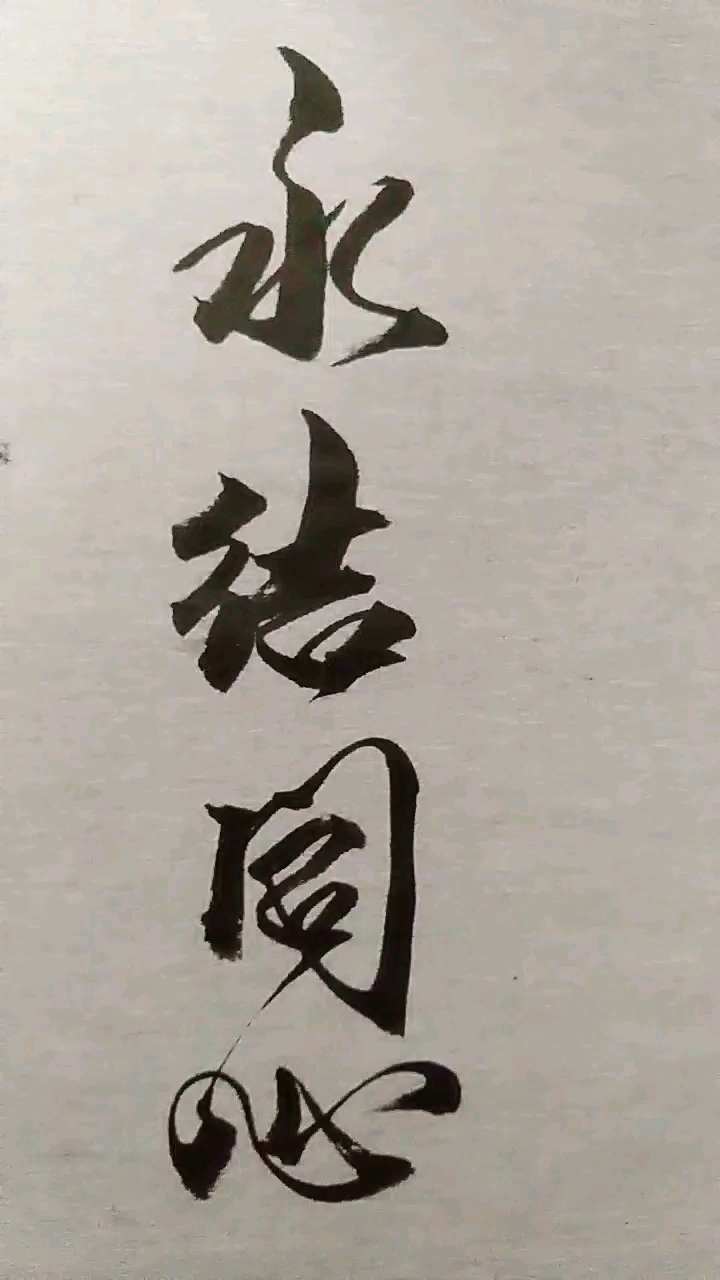 永结同心